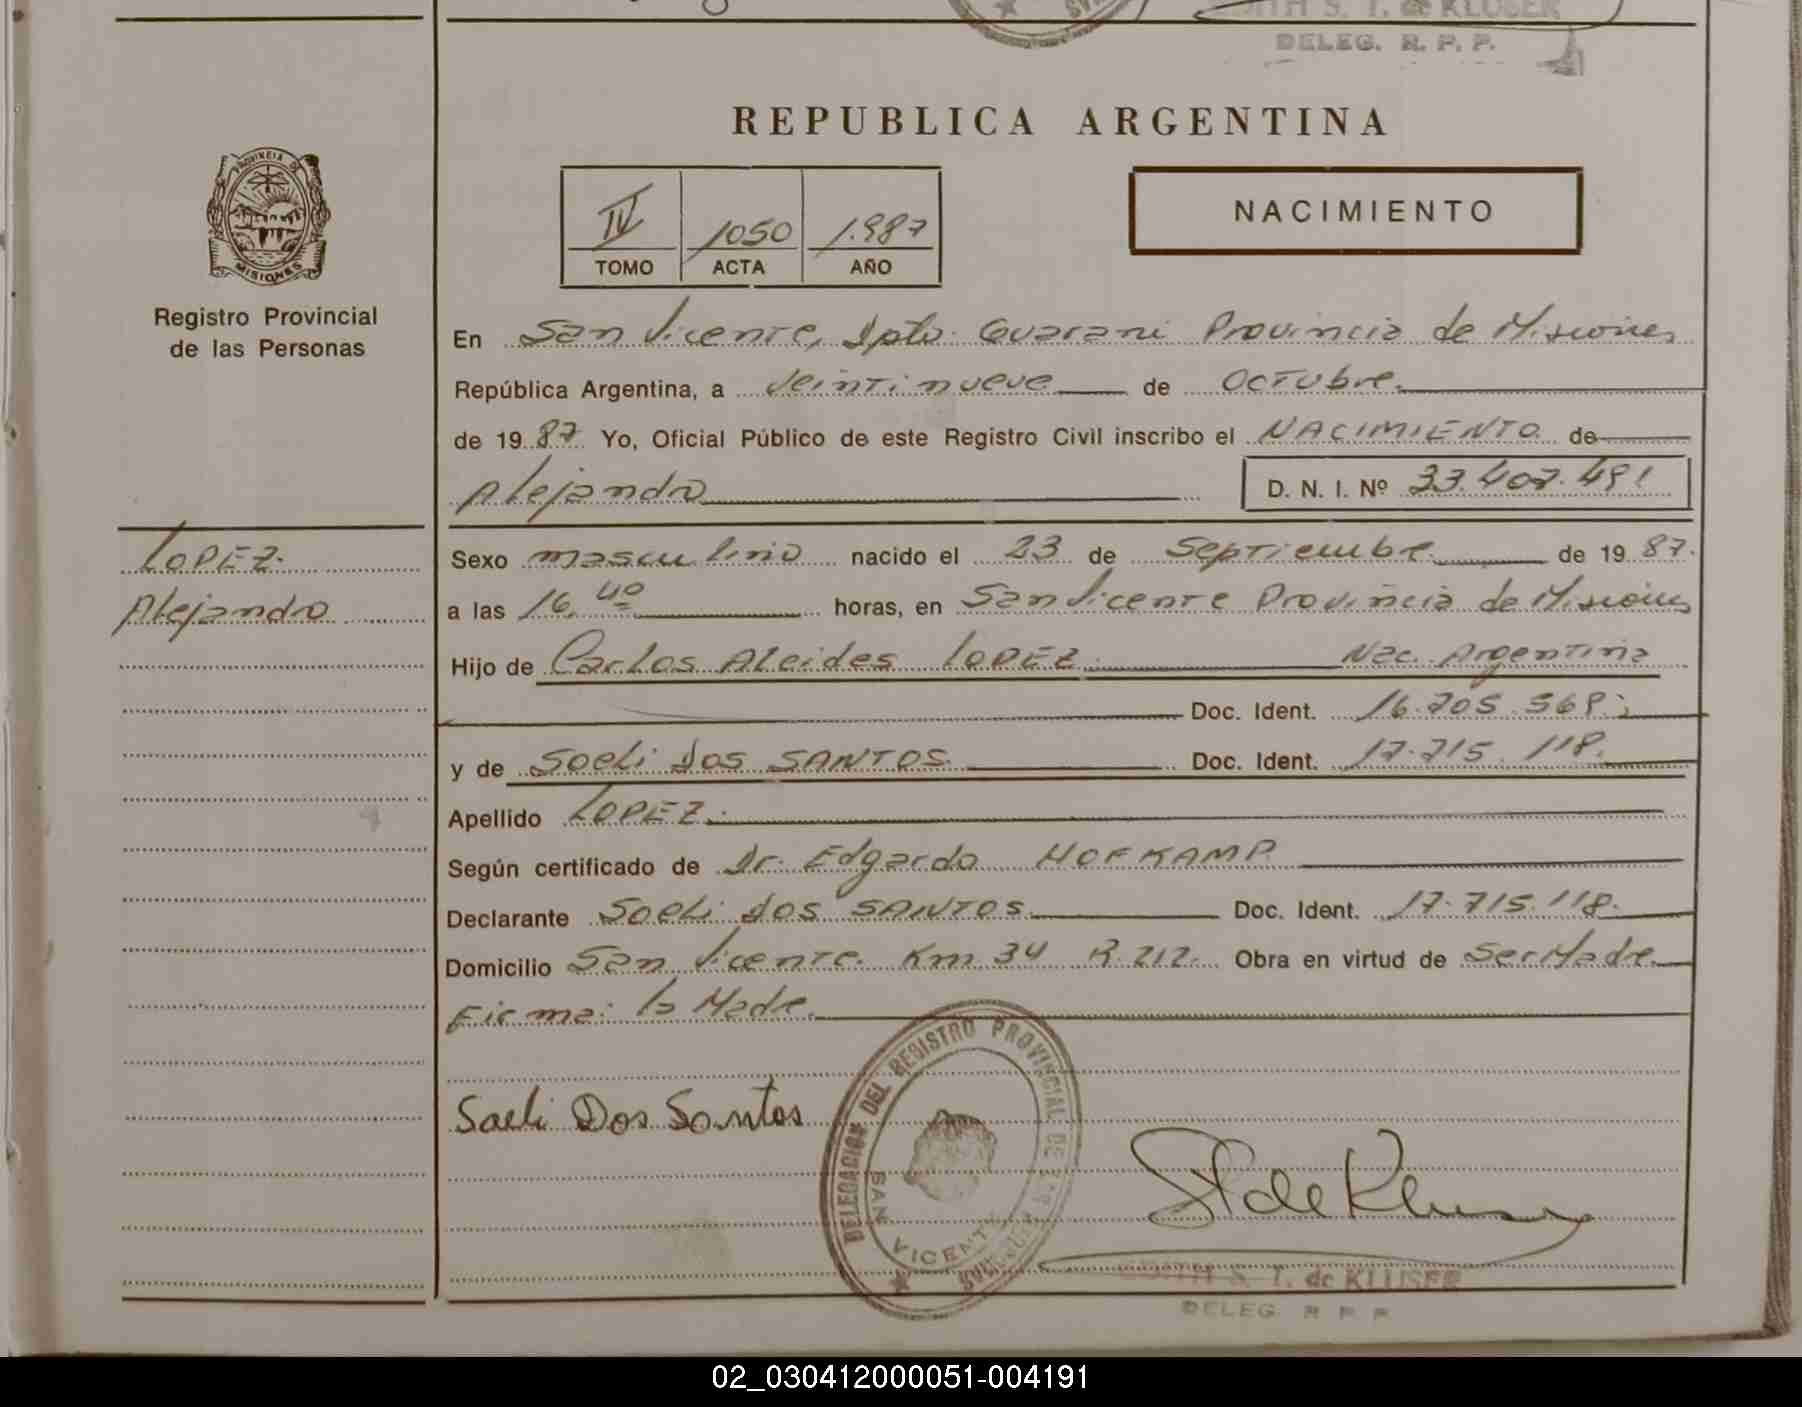 DITH S. T. de KLUSER
DELEG. R. P. P.
REPUBLICA ARGENTINA
PROVINCIA DE
MISIONES
Registro Provincial
de las Personas
IV 1050 1.987
TOMO ACTA AÑO
NACIMIENTO
En San Vicente, Dpto. Guarani Provincia de Misiones
República Argentina, a veintinueve de Octubre.
de 19 87 Yo, Oficial Público de este Registro Civil inscribo el NACIMIENTO de
Alejandro D. N. I. Nº 33.407.491
LOPEZ.
Alejandro
Sexo masculino nacido el 23 de Septiembre de 19 87.
a las 16,40 horas, en San Vicente Provincia de Misiones
Hijo de Carlos Alcides LOPEZ. Nac. Argentina
Doc. Ident. 16.705.569.
y de Soeli Dos SANTOS Doc. Ident. 17.715.118.
Apellido LOPEZ.
Según certificado de Dr. Edgardo HOFKAMP.
Declarante Soeli Dos SANTOS Doc. Ident. 17.715.118.
Domicilio San Vicente. Km 34 R. 212. Obra en virtud de Ser Madre
Firma: la Madre.
Saeli Dos Santos
DELEGACION DEL REGISTRO PROVINCIAL DE LAS PERSONAS
SAN VICENTE
MISIONES
St de Kluser
EDITH S. T. de KLUSER
DELEG. R. P. P.
02_030412000051-004191